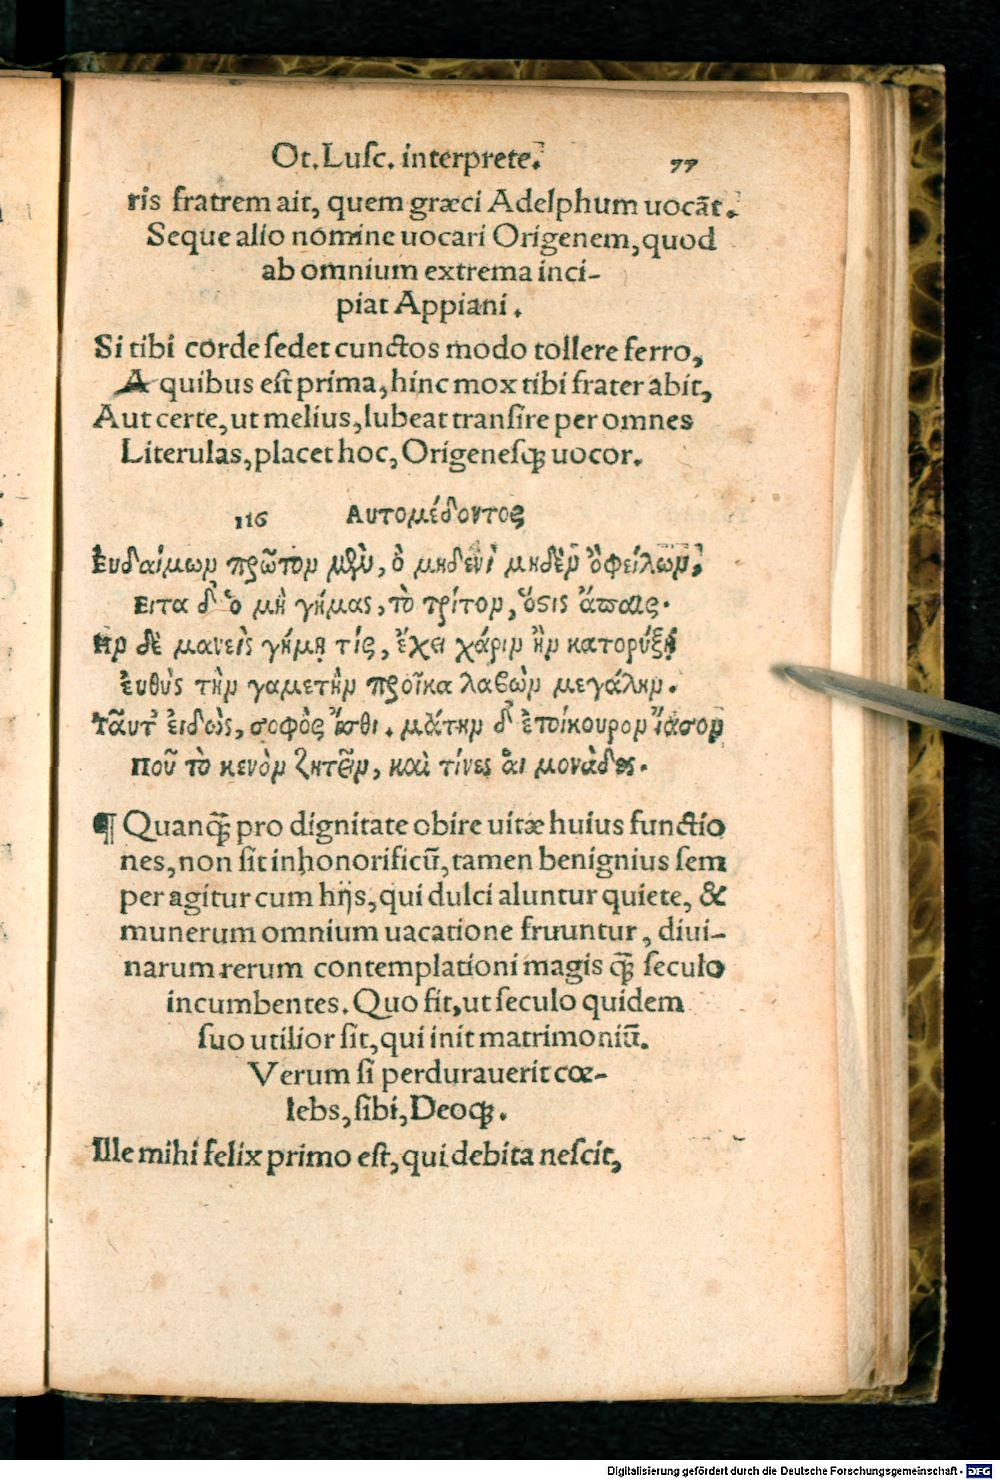 Ot. Luſc. interprete. 77
ris fratrem ait, quem græci Adelphum uocāt.
Seque alio nomine uocari Origenem, quod
ab omnium extrema inci-
piat Appiani.
Si tibi corde ſedet cunctos modo tollere ferro,
A quibus eſt prima, hinc mox tibi frater abit,
Aut certe, ut melius, lubeat tranſire per omnes
Literulas, placet hoc, Origeneſqꝫ uocor.
116 Αυτομέδοντος
Ἐυδαίμων πρῶτον μὲν, ὁ μηδενὶ μηδὲν ὀφείλων,
Ειτα δ' ὁ μὴ γήμας, τὸ τρίτον, ὅστις ἄπαις.
Ην δὲ μανεὶς γήμῃ τίς, ἔχει χάριν ἢν κατορύξῃ
ἐυθὺς τὴν γαμετὴν προῖκα λαβὼν μεγάλην.
Ταῦτ' ἐιδὼς, σοφὸς ἴσθι. μάτην δ' ἐπίκουρον ἴασον
Ποῦ τὸ κενὸν ζητεῖν, καὶ τίνες ἁι μονάδες.
¶ Quanqꝫ̄ pro dignitate obire uitæ huius functio
nes, non ſit inhonorificū, tamen benignius ſem
per agitur cum hijs, qui dulci aluntur quiete, &
munerum omnium uacatione fruuntur, diui-
narum rerum contemplationi magis qꝫ̄ ſeculo
incumbentes. Quo fit, ut ſeculo quidem
ſuo utilior ſit, qui init matrimoniū.
Verum ſi perdurauerit cœ-
lebs, ſibi, Deoqꝫ.
Ille mihi felix primo eſt, qui debita neſcit,
Digitalisierung gefördert durch die Deutsche Forschungsgemeinschaft - DFG